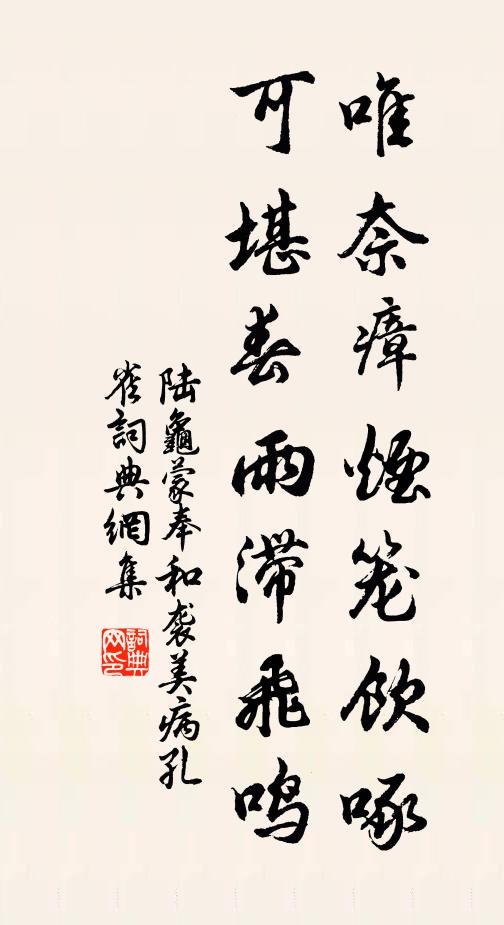 唯奈瘴煙笼飲啄
可堪春雨滞飛鳴
陆龜蒙奉和袭美病孔
雀詞典網集
詞典网印